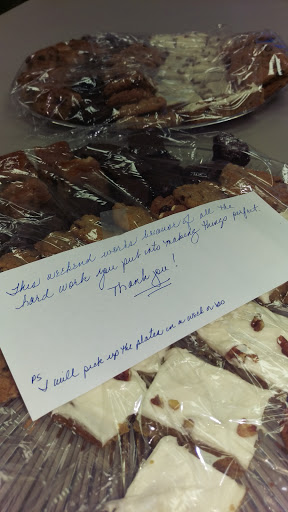 This weekend works because of all the
hard work you put into making things perfect.
Thank you!
PS
I will pick up the plates in a week or so